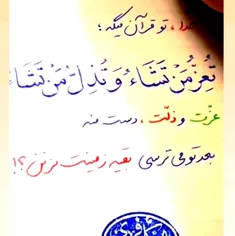 خدا، تو قرآن میگه؛
تُعِزُّ مَنْ تَشَاءُ وَ تُذِلُّ مَنْ تَشَاءُ
عزت و ذلت، دست منه
بعد تو می ترسی بقیه زمینت بزنن؟!